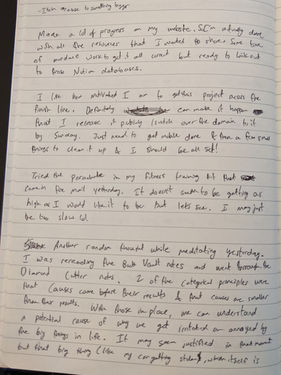 - Itch grease to something bigger
Made a lot of progress on my website. I'm already done
with all the resources that I wanted to share. Some type
of mediocre work to get it all correct but ready to link out
to those Notion databases.
I like how motivated I am to get this project across the
finish line. Definitely can make it happen
that I release it publicly (switch over the domain to it
by Sunday. Just need to get mobile done & then a few small
things to clean it up & I should be all set!
Tried the parachute in my fitness training kit that
came in the mail yesterday. It doesn't seem to be getting as
high as I would like it to be but lets see. I may just
be too slow lol.
Another random thought while meditating yesterday.
I was rereading the Book Vault notes and went through the
Diamond Cutter notes. 2 of the categorical principles were
that causes come before their results & that causes are smaller
than their results. With those in place, we can understand
a potential cause of why we get irritated or annoyed by
the big things in life. It may seem justified in that moment
but that big thing (like my car getting stolen), when itself is